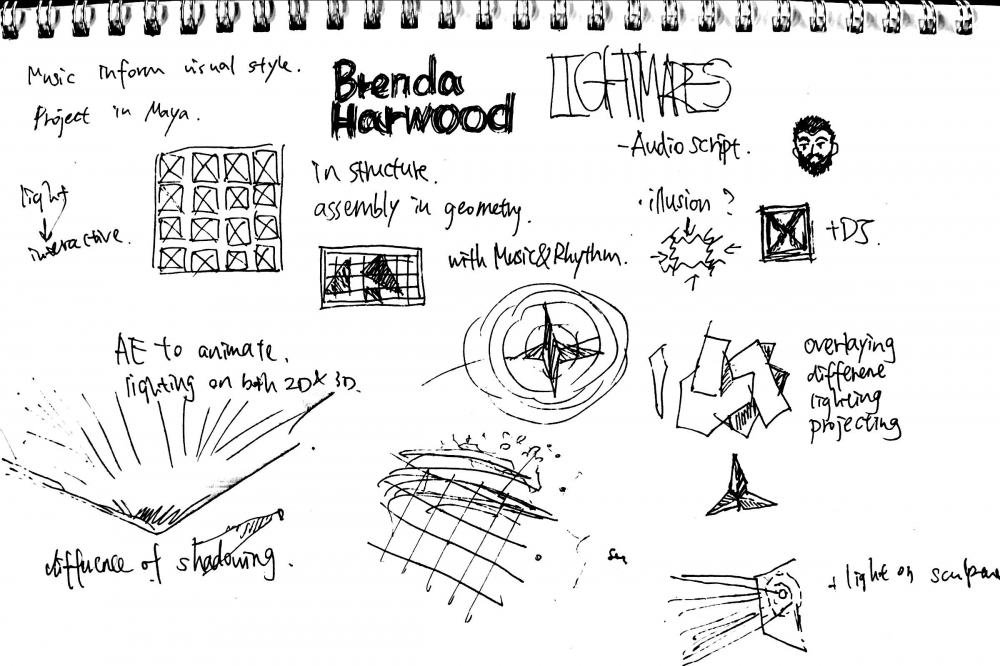 Music inform visual style.
Project in Maya.
Brenda
Harwood
LIGHTMARES
-Audio script.
light
interactive.
in structure.
assembly in geometry.
with Music&Rhythm.
·illusion ?
+DJ.
AE to animate.
lighting on both 2D & 3D.
overlaying
difference
lighting
projecting
diffuence of shadowing.
+ light on